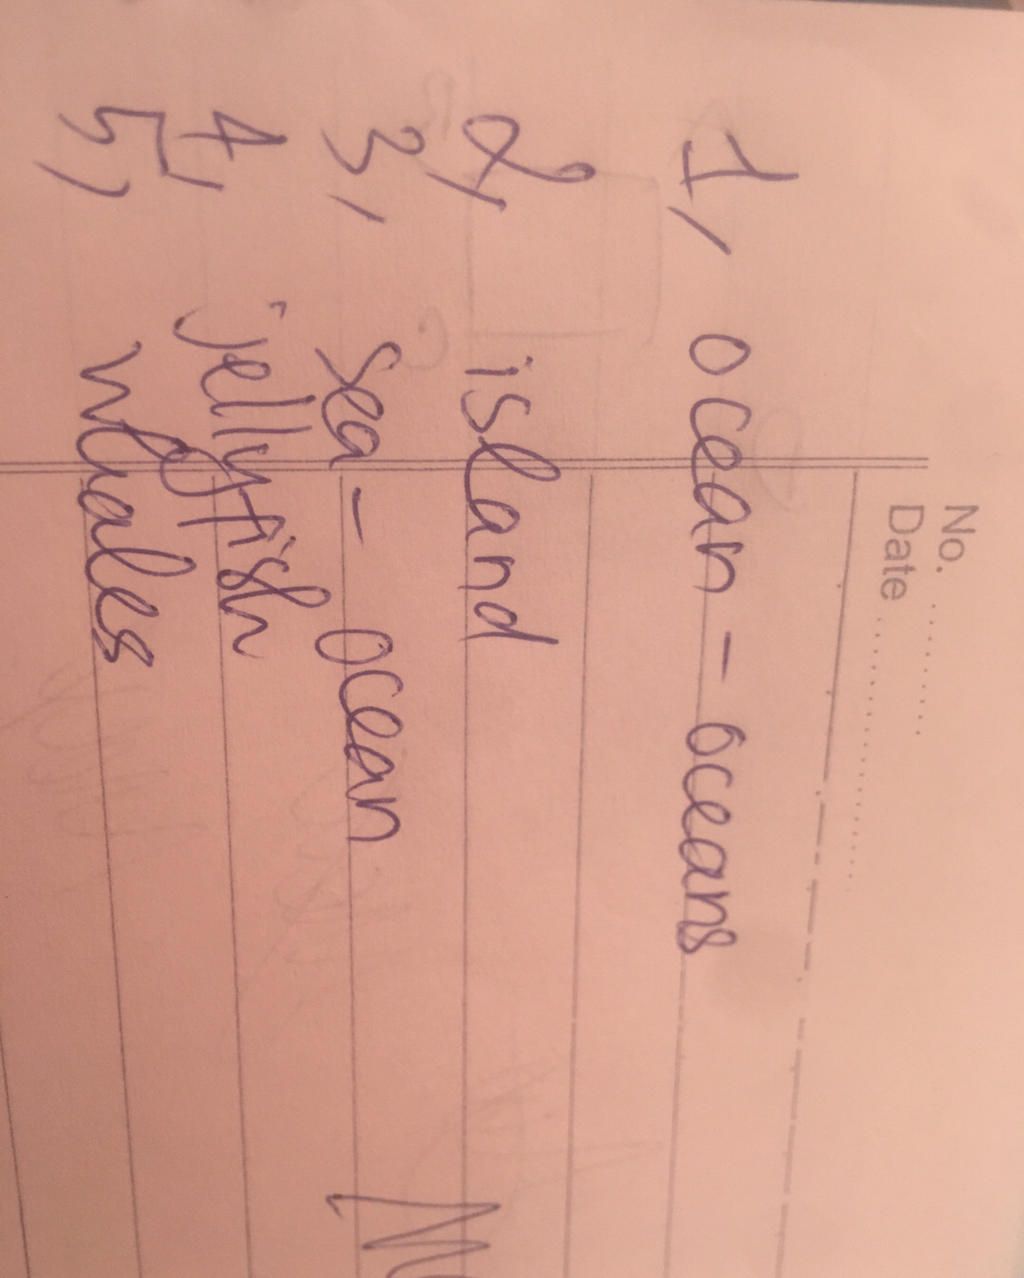 No. ..........
Date ....................
1, ocean - oceans
2, island
3, sea - ocean
4, jellyfish
5, whales